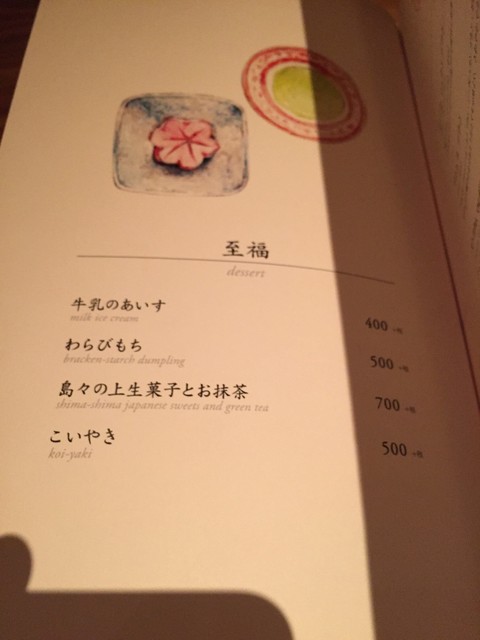 至福
dessert
牛乳のあいす
milk ice cream
400 +税
わらびもち
bracken-starch dumpling
500 +税
島々の上生菓子とお抹茶
shima-shima japanese sweets and green tea
700 +税
こいやき
koi-yaki
500 +税